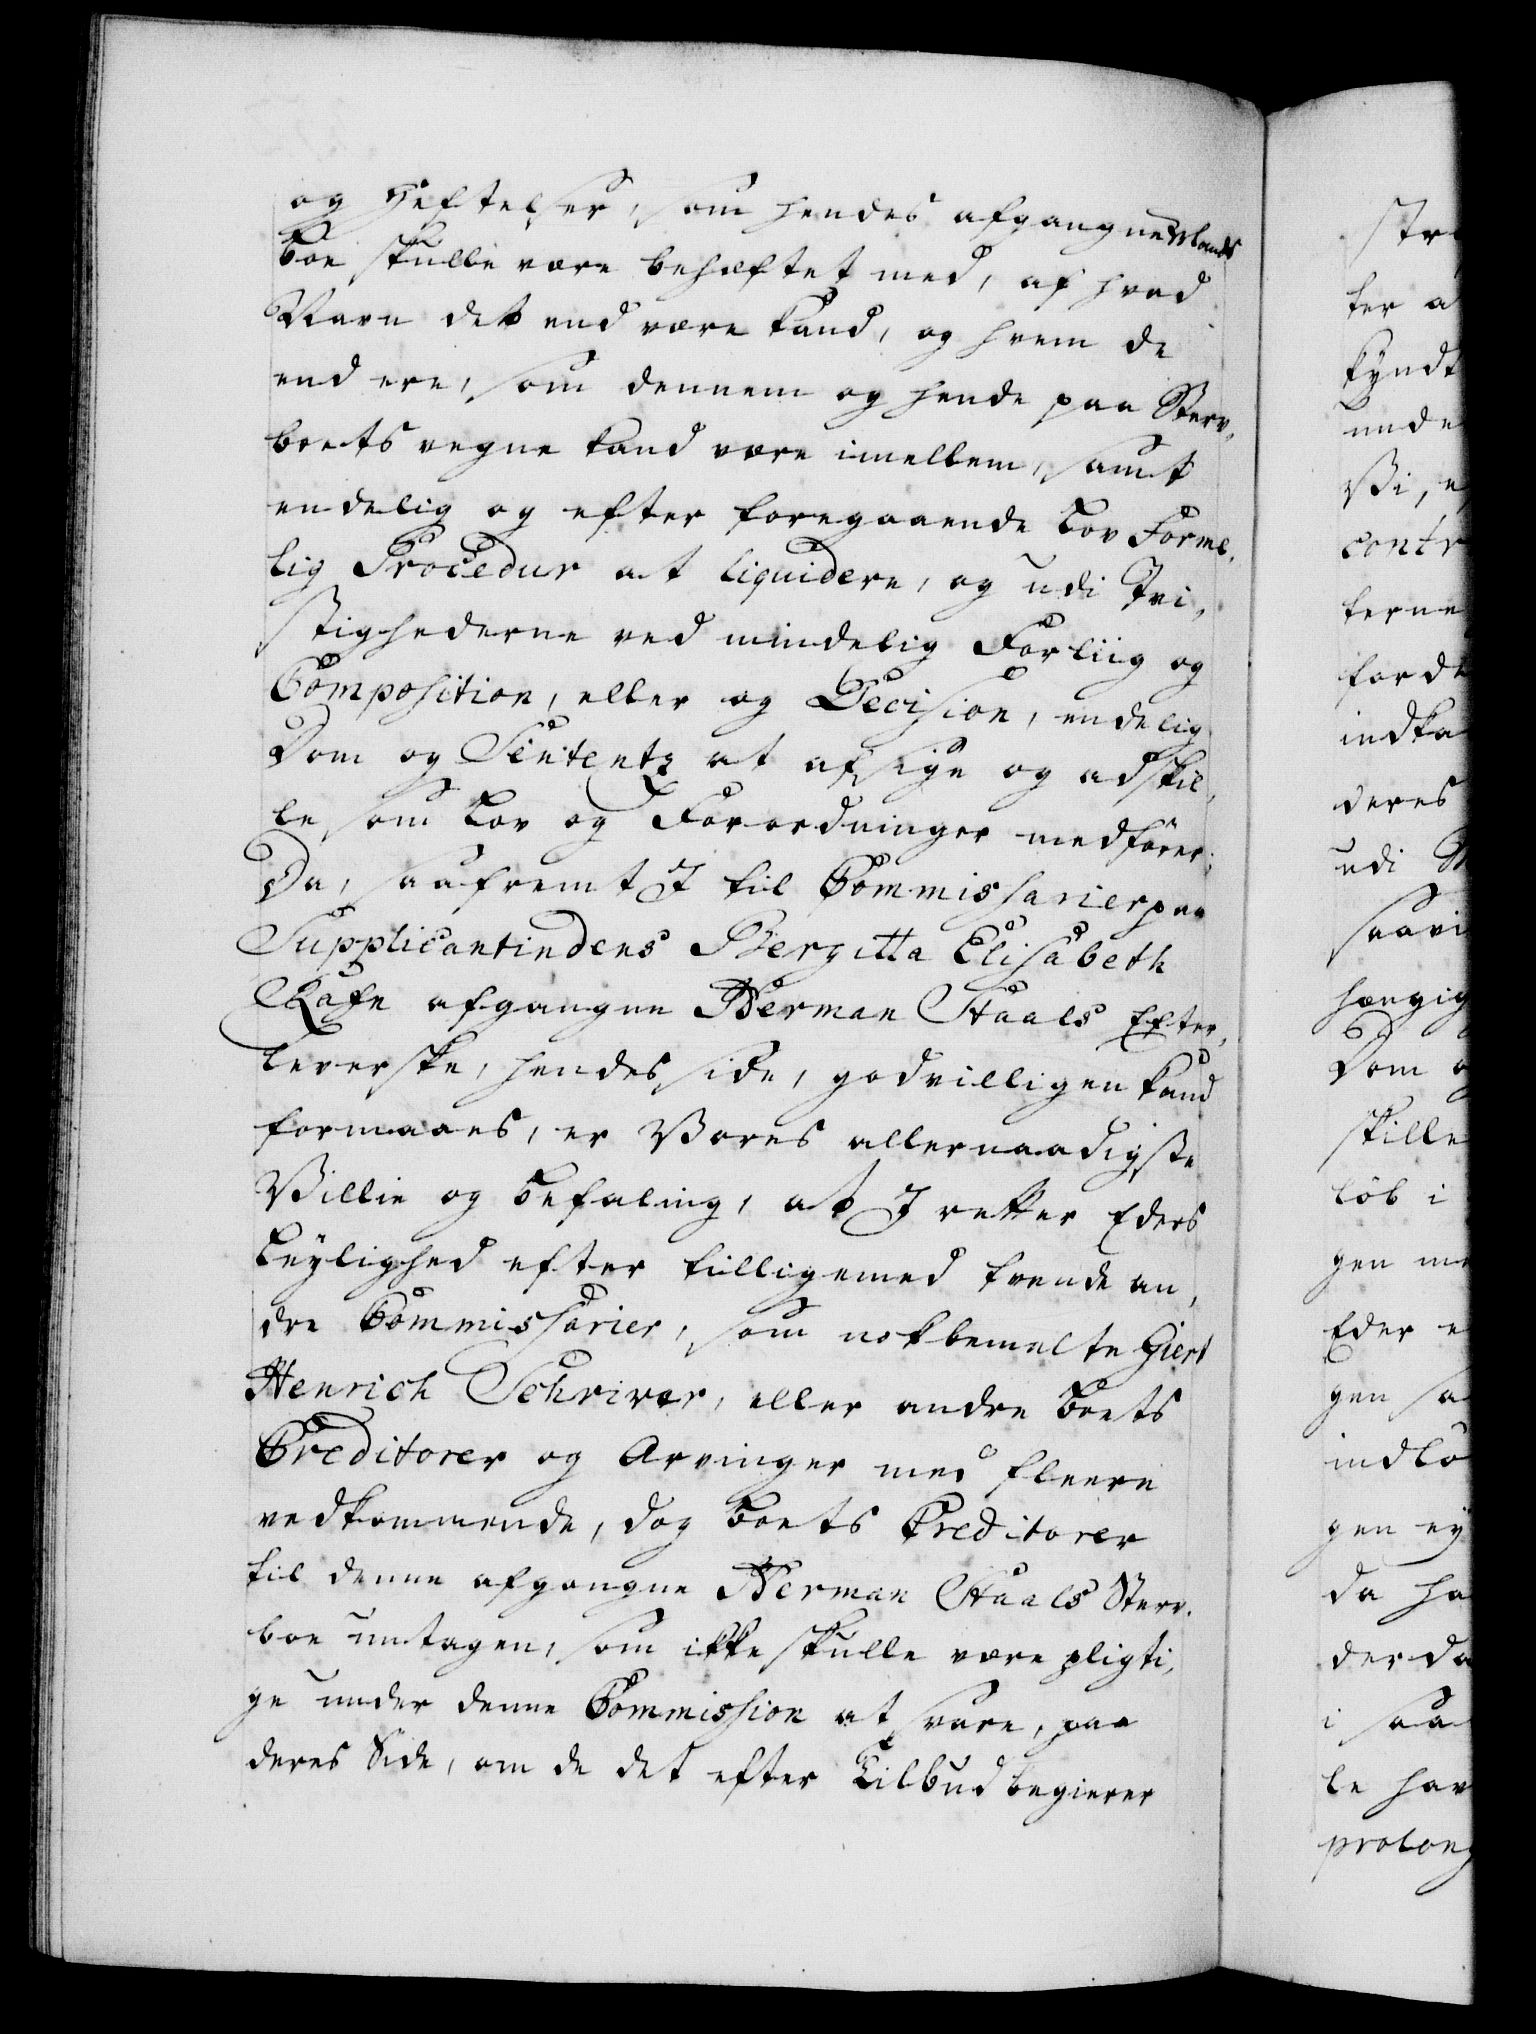 og Hæftelser, som hendes afgangne Mands
Boe skulle være behæftet med, af hvad
Navn det end være kand, og hvem de
end ere, som dennem og hende paa Sterv-
boets vegne kand være imellem, samt
endelig og efter foregaaende Lov Forme-
lig Procedur at liquidere, og udi Tvi-
stighederne ved mindelig Forliig og
Composition, eller og Decision, endelig
Dom og Sententz at afsige og adskil-
le som Lov og Forordninger medfører;
Da, saafremt I til Commissarier paa
Supplicantindens Bergitta Elisabeth
Rafn afgangne Herman Staals Efter-
leverske, hendes side, godvilligen kand
formaaes, er Vores allernaadigste
Villie og Befaling, at I retter Eders
Leylighed efter tilligemed trende an-
dre Commissarier, som nokbemelte Giert
Henrich Schriver, eller andre Boets
Creditorer og Arvinger med fleere
vedkommende, dog Boets Creditorer
til denne afgangne Herman Staals Sterv-
boe untagen, som ikke skulle være pligti-
ge under denne Commission at svare, paa
deres Side, om de det efter Tilbud begierer
ter a
kyndt
unde
Vi, e
contr
terne
fordt
indka
deres
udi
hengig
Dom o
skille
løb i
gen me
Eder e
gen sa
indlø
gen ey
da ha
der da
i saa
le hav
prolong